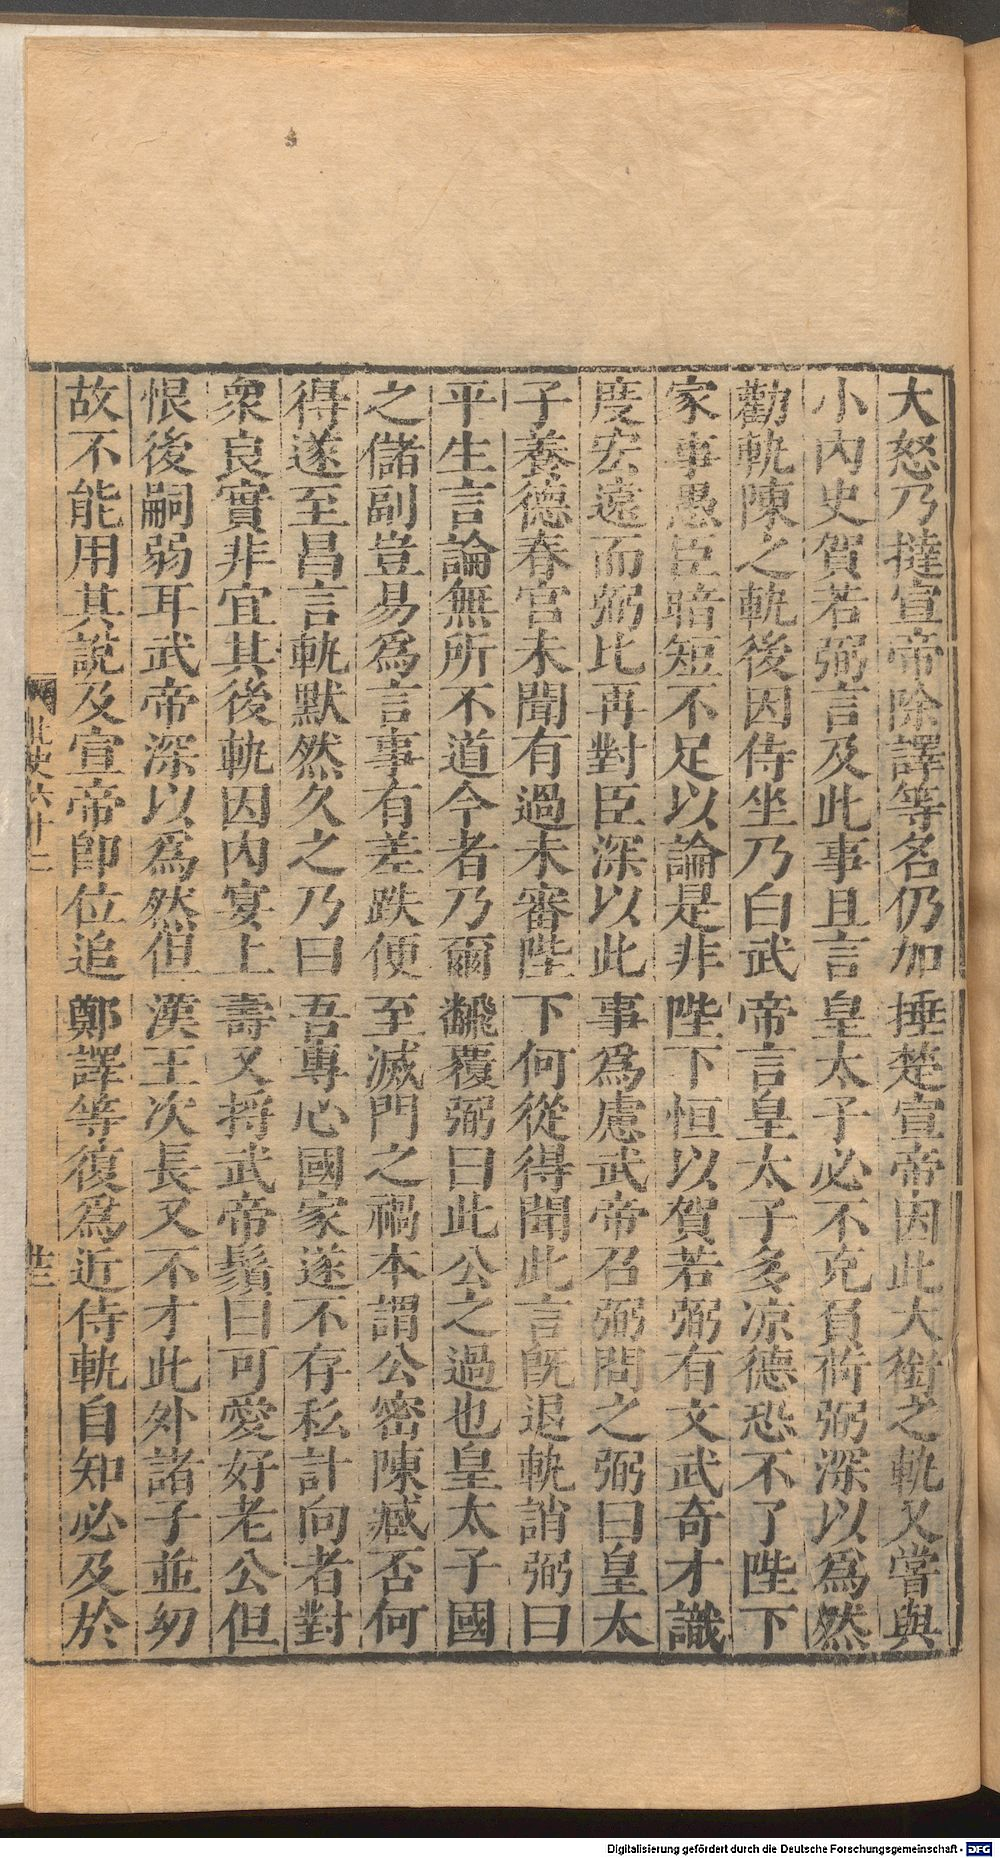 大怒乃撻宣帝除譯等名仍加捶楚宣帝因此大銜之軌又嘗與
小內史賀若弼言及此事且言皇太子必不克負荷弼深以爲然
勸軌陳之軌後因侍坐乃白武帝言皇太子多凉德恐不了陛下
家事愚臣暗短不足以論是非陛下恒以賀若弼有文武奇才識
度宏遠而弼比再對臣深以此事爲慮武帝召弼問之弼曰皇太
子養德春宮未聞有過未審陛下何從得聞此言旣退軌誚弼曰
平生言論無所不道今者乃爾飜覆弼曰此公之過也皇太子國
之儲副豈易爲言事有差跌便至滅門之禍本謂公密陳臧否何
得遂至昌言軌默然久之乃曰吾專心國家遂不存私計向者對
衆良實非宜其後軌因內宴上壽又捋武帝鬚曰可愛好老公但
恨後嗣弱耳武帝深以爲然但漢王次長又不才此外諸子並幼
故不能用其説及宣帝卽位追鄭譯等復爲近侍軌自知必及於
北史六十二
廿三
Digitalisierung gefördert durch die Deutsche Forschungsgemeinschaft - DFG